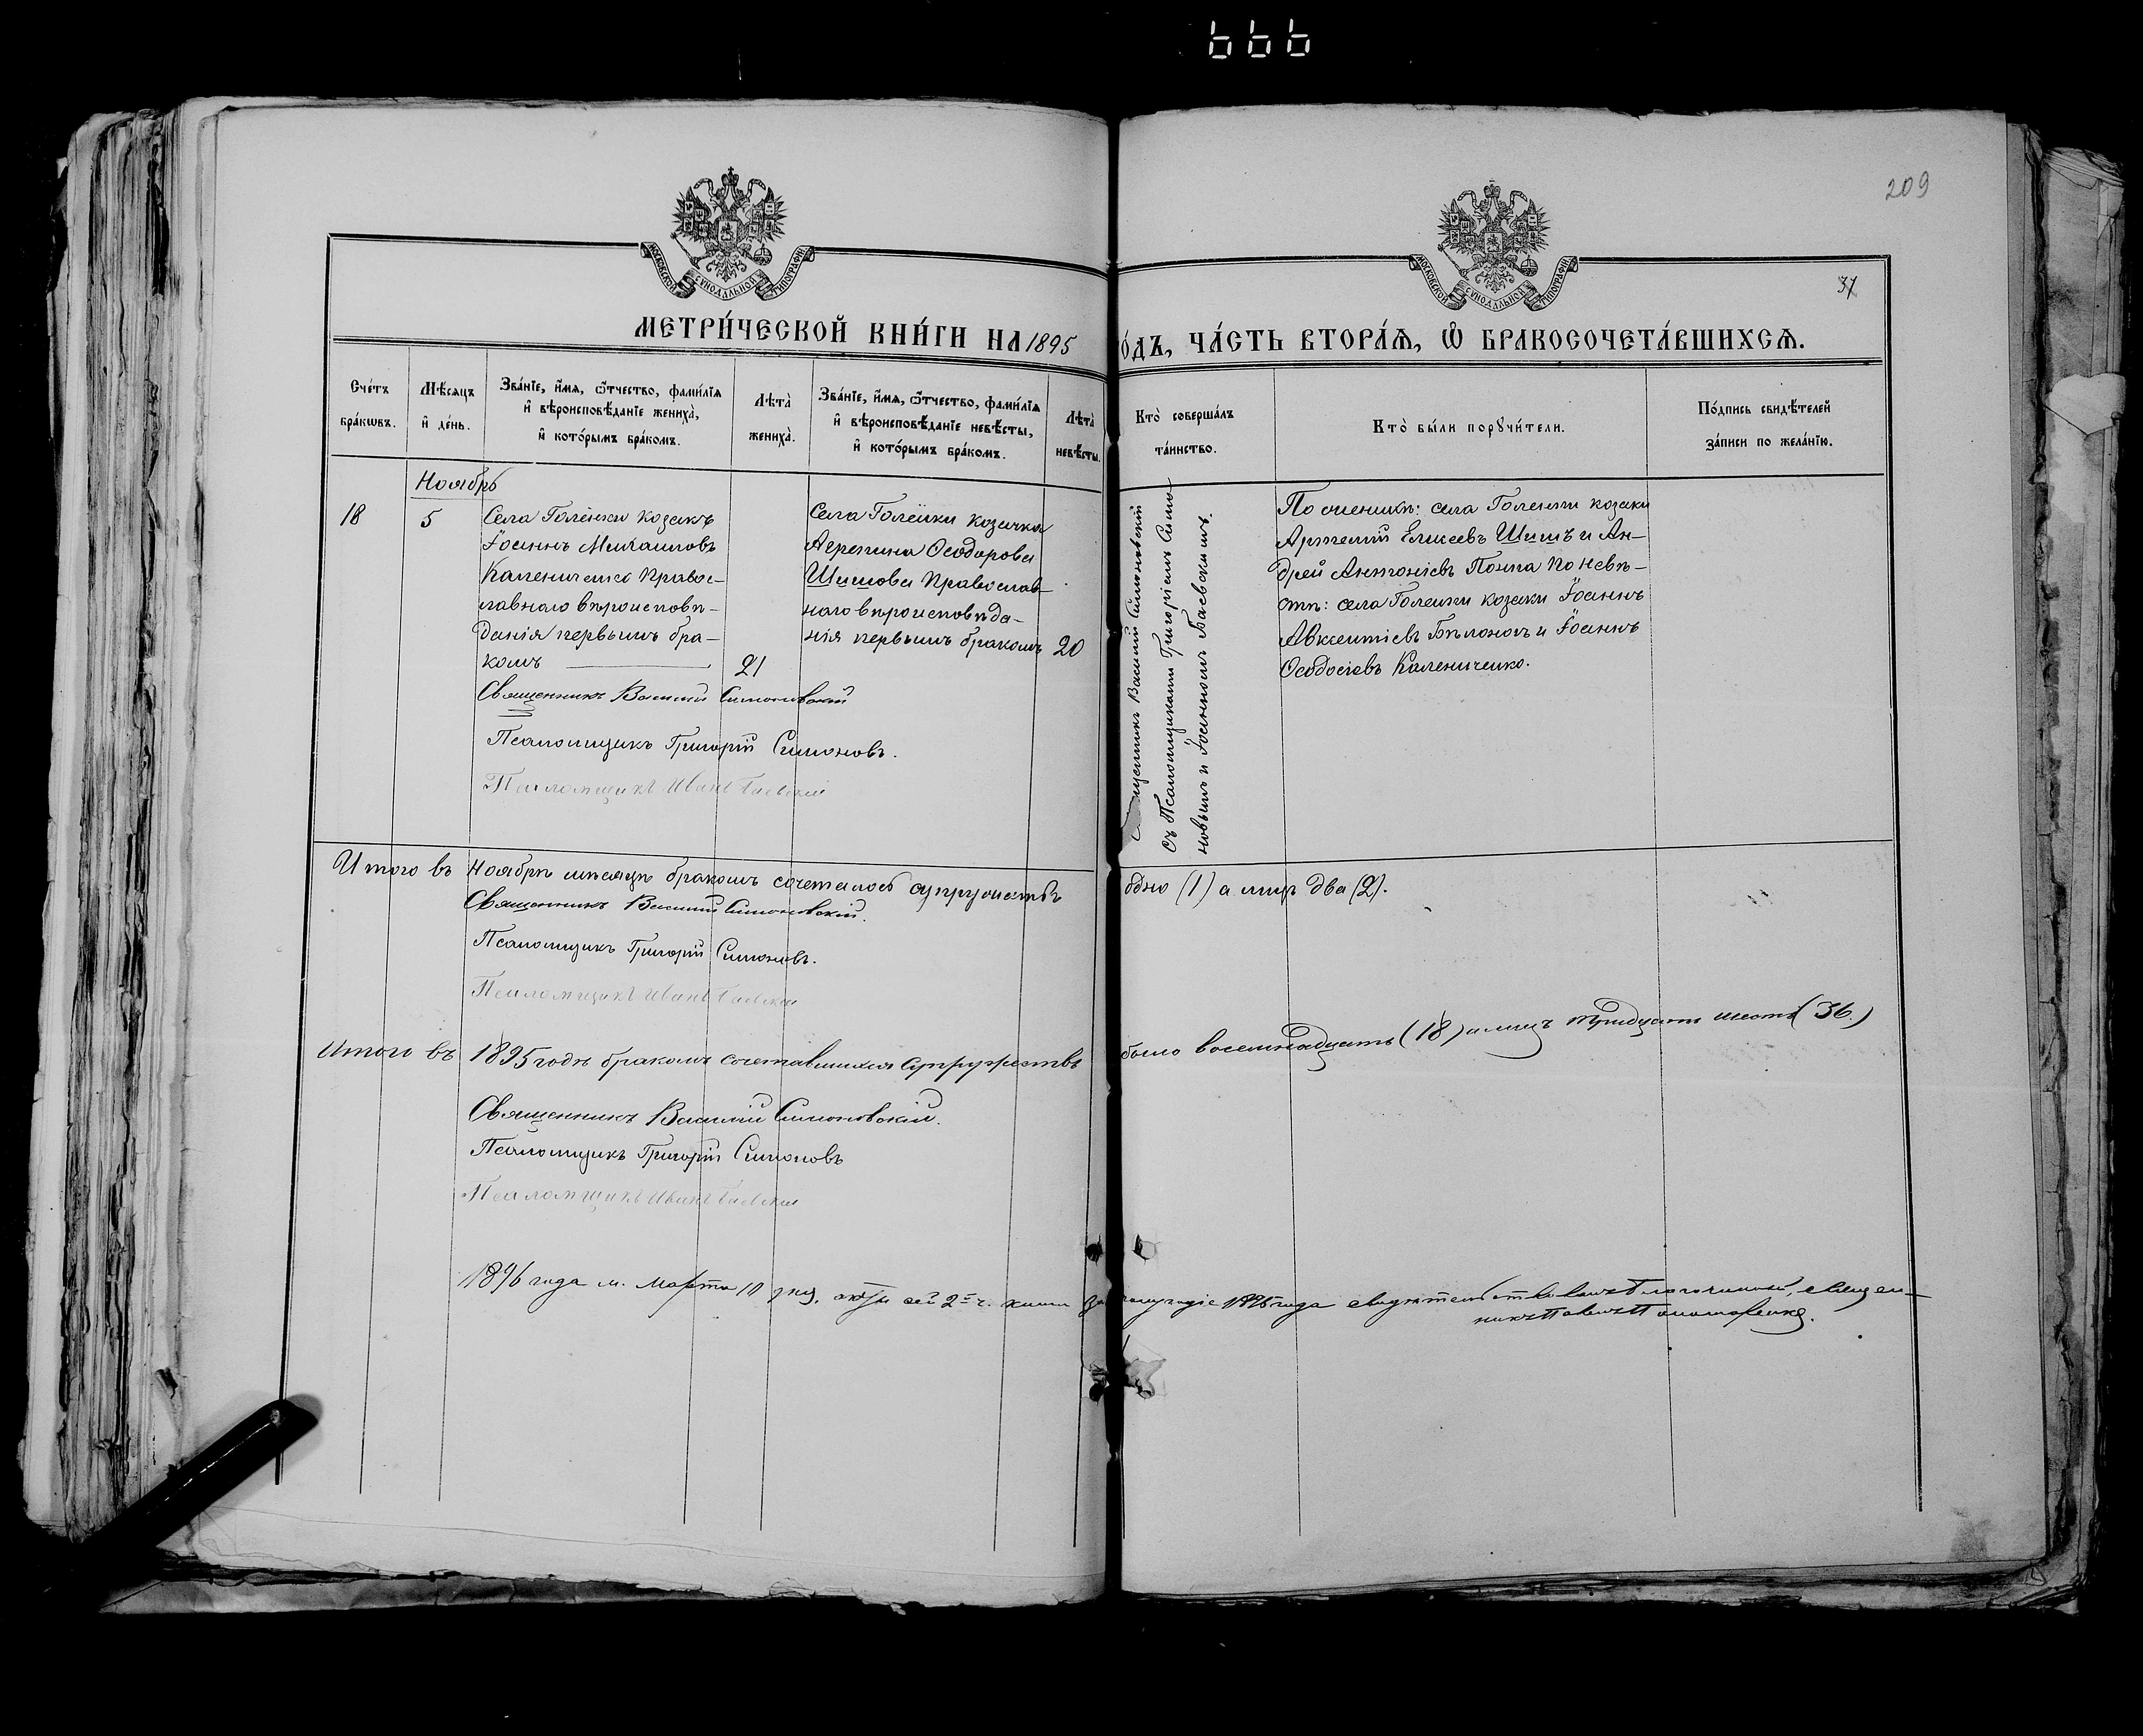 209
37
МОСКОВСКОЙ СѴНОДАЛЬНОЙ ТИПОГРАФІИ
МОСКОВСКОЙ СѴНОДАЛЬНОЙ ТИПОГРАФІИ
МЕТРИ́ЧЕСКОЙ КНИ́ГИ НА 1895
О́ДЪ, ЧА́СТЬ ВТОРА́Ѧ, Ѡ҆ БРАКОСОЧЕТА́ВШИХСѦ.
Сче́тъ
бра́кѡвъ.
Мѣ́сяцъ
и҆ де́нь.
Зва́нїе, и҆́мѧ, ѻ҆́тчество, фами́лїѧ
и҆ вѣроисповѣ́данїе жениха̀,
и҆ кото́рымъ бра́комъ.
Лѣ́та
жениха̀.
Зва́нїе, и҆́мѧ, ѻ҆́тчество, фами́лїѧ
и҆ вѣроисповѣ́данїе невѣ́сты,
и҆ кото́рымъ бра́комъ.
Лѣ́та
невѣ́сты.
Кто̀ соверша́лъ
та́инство.
Кто̀ бы́ли порꙋчи́тели.
По́дпись свидѣ́телей
за́писи по жела́нїю.
Ноябрь
18
5
Села Голенки козакъ
Іоаннъ Михаиловъ
Калениченко Правос-
лавнаго вѣроисповѣ-
данія первымъ бра-
комъ
21
Села Голенки козачка
Агрепина Ѳеодорова
Шишова Православ-
наго вѣроисповѣда-
нія первымъ бракомъ
20
Священникъ Василій Симоновскій
съ Псаломщиками Григоріемъ Симо-
новымъ и Іоанномъ Гаевскимъ.
По женихѣ: села Голенки козаки
Артемій Елисеевъ Шишъ и Ан-
дрей Антоніевъ Понпа По невѣ-
стѣ: села Голенки козаки Іоаннъ
Авксентіевъ Бѣлоконь и Іоаннъ
Ѳеодосіевъ Калениченко.
Священникъ Василій Симоновскій
Псаломщикъ Григорій Симоновъ.
Псаломщикъ Иванъ Гаевскій
Итого въ Ноябрѣ мѣсяцѣ бракомъ сочеталось супружествъ одно (1) а лицъ два (2).
Священникъ Василій Симоновскій.
Псаломщикъ Григорій Симоновъ.
Псаломщикъ Иванъ Гаевскій
Итого въ 1895 годѣ бракомъ сочетавшихся супружествъ было восемнадцать (18) а лицъ тридцать шесть (36.)
Священникъ Василій Симоновскій.
Псаломщикъ Григорій Симоновъ
Псаломщикъ Иванъ Гаевскій
1896 года м. Марта 10 дня, сей 2й ч. книги за полугодіе 1895 года свидѣтельствовалъ Благочинный, священ-
никъ Павелъ Пономаренко.